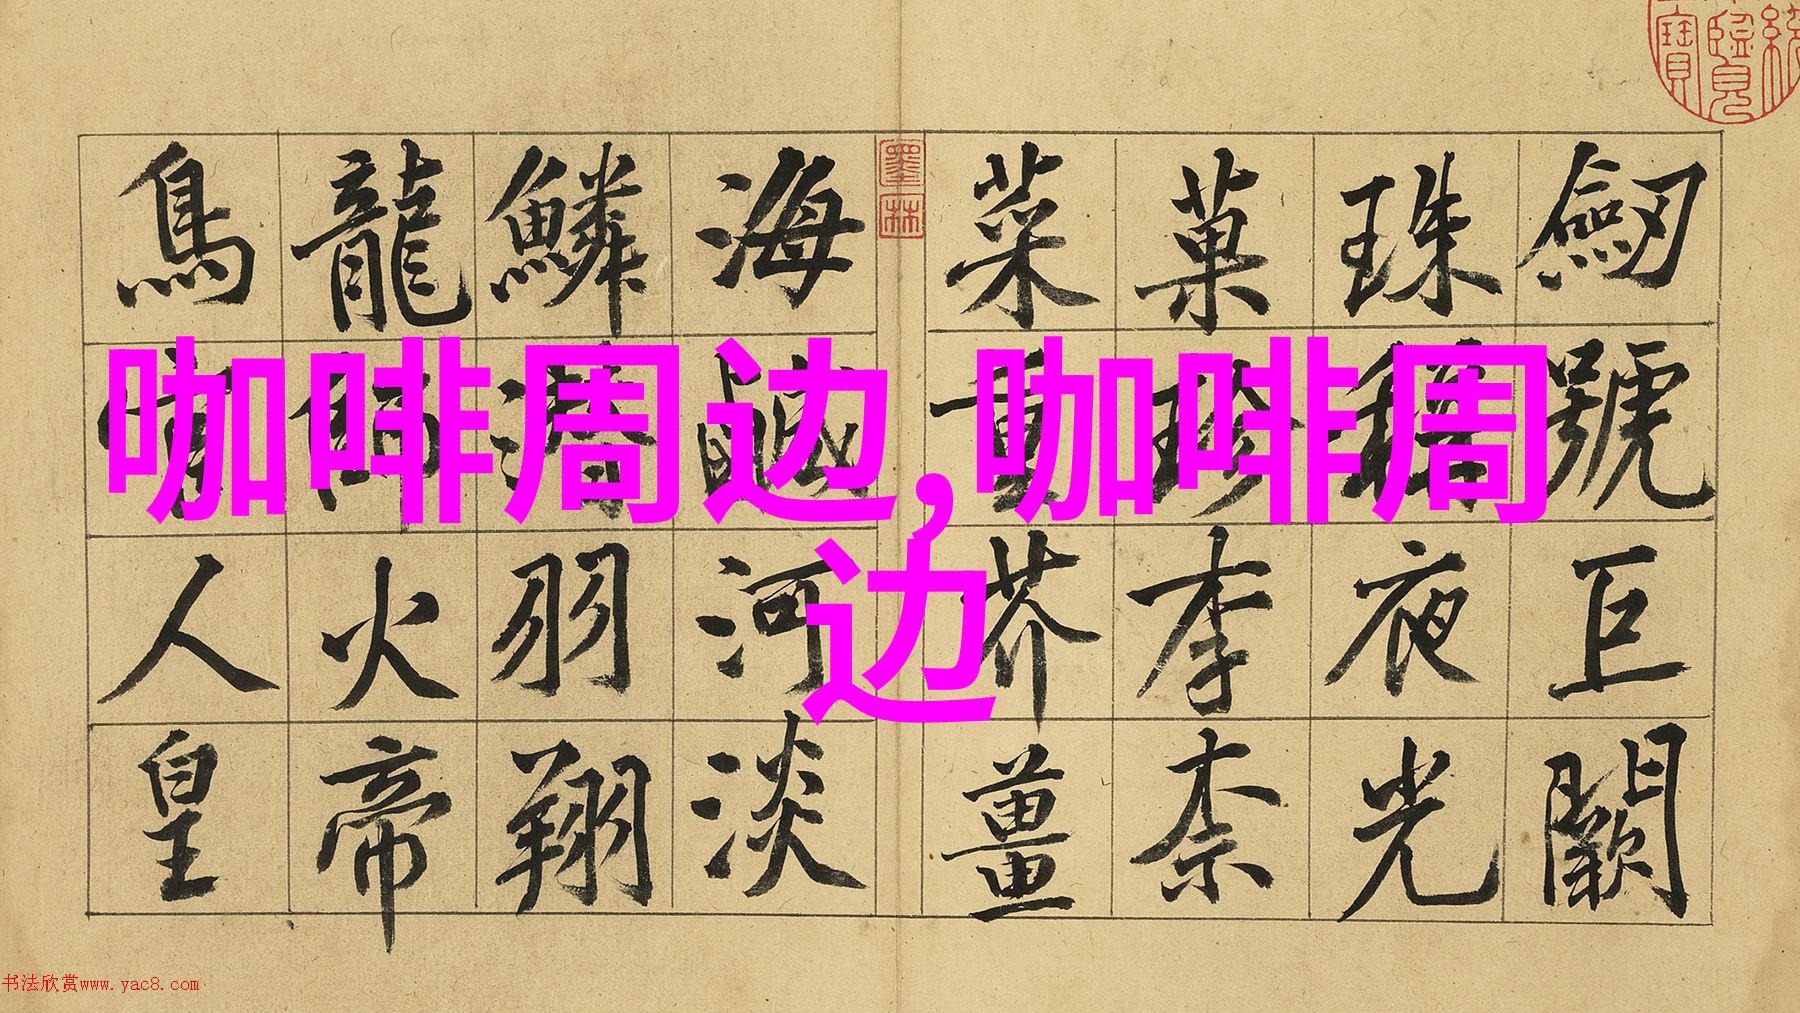 咖啡周边,咖啡周
边
劒號巨闕
珠稱夜光
菓珍李柰
菜重芥薑
海鹹河淡
鱗潛羽翔
龍師火帝
鳥官人皇
墨林
书法欣赏www.yac8.com